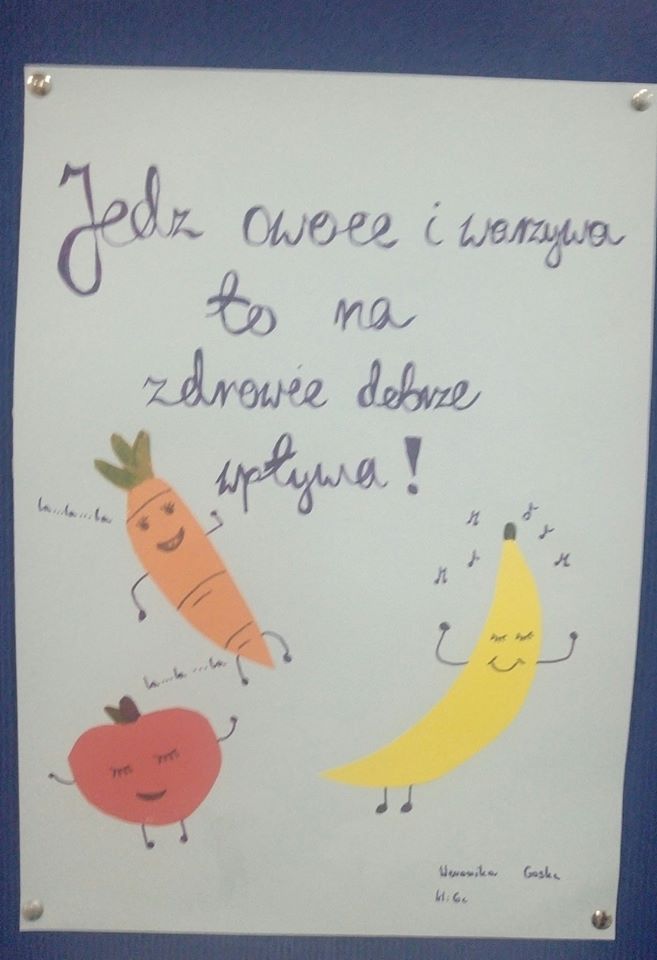 Jedz owoce i warzywa
to na
zdrowie dobrze
wpływa!
la...la...la
la...la...la
Weronika
kl. 6c